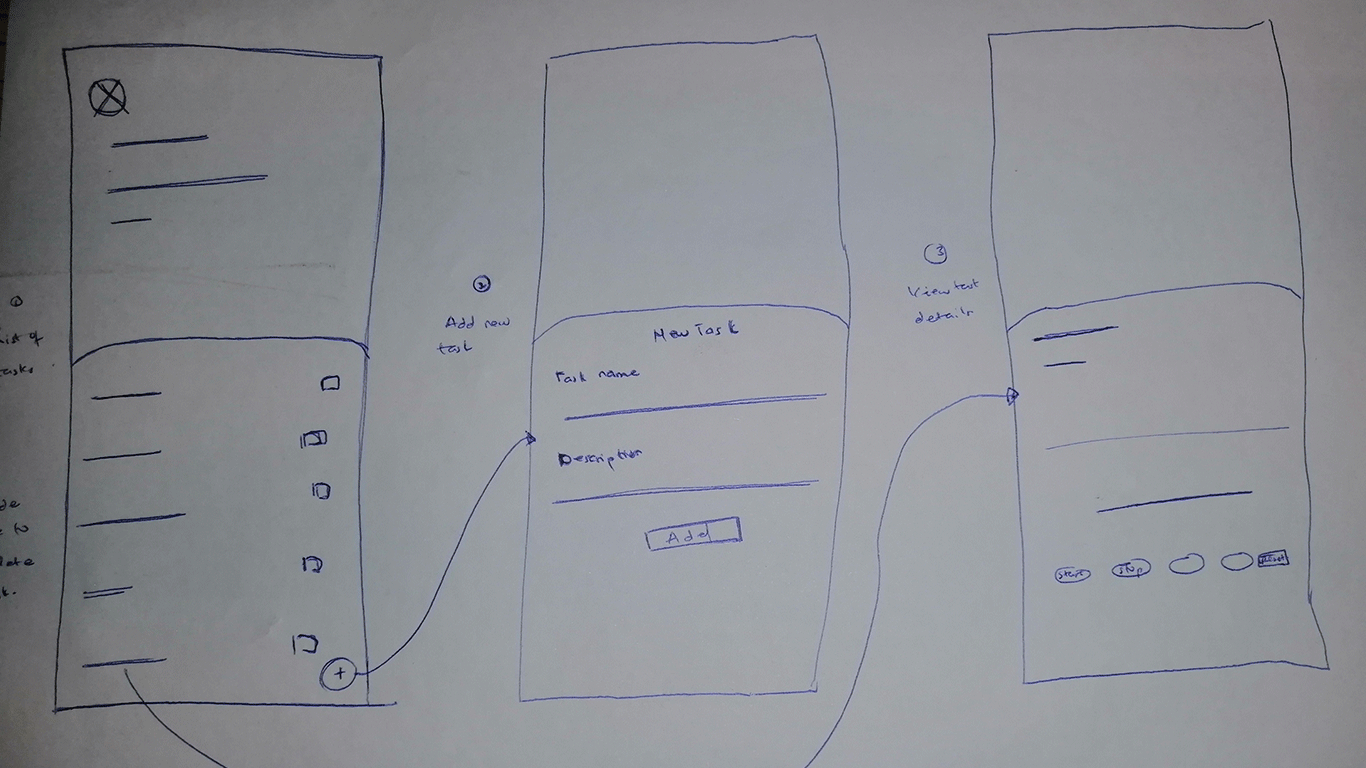 ①
List of
tasks
de
e to
lete
k.
+
②
Add new
task
New Task
Task name
Description
Add
③
View task
details
start
stop